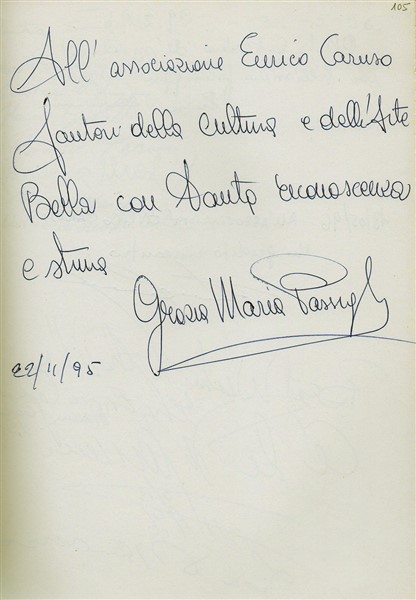 105
All' associazione Enrico Caruso
fautori della cultura e dell'Arte
Bella con tanta riconoscenza
e stima
Grazia Maria
22/11/95